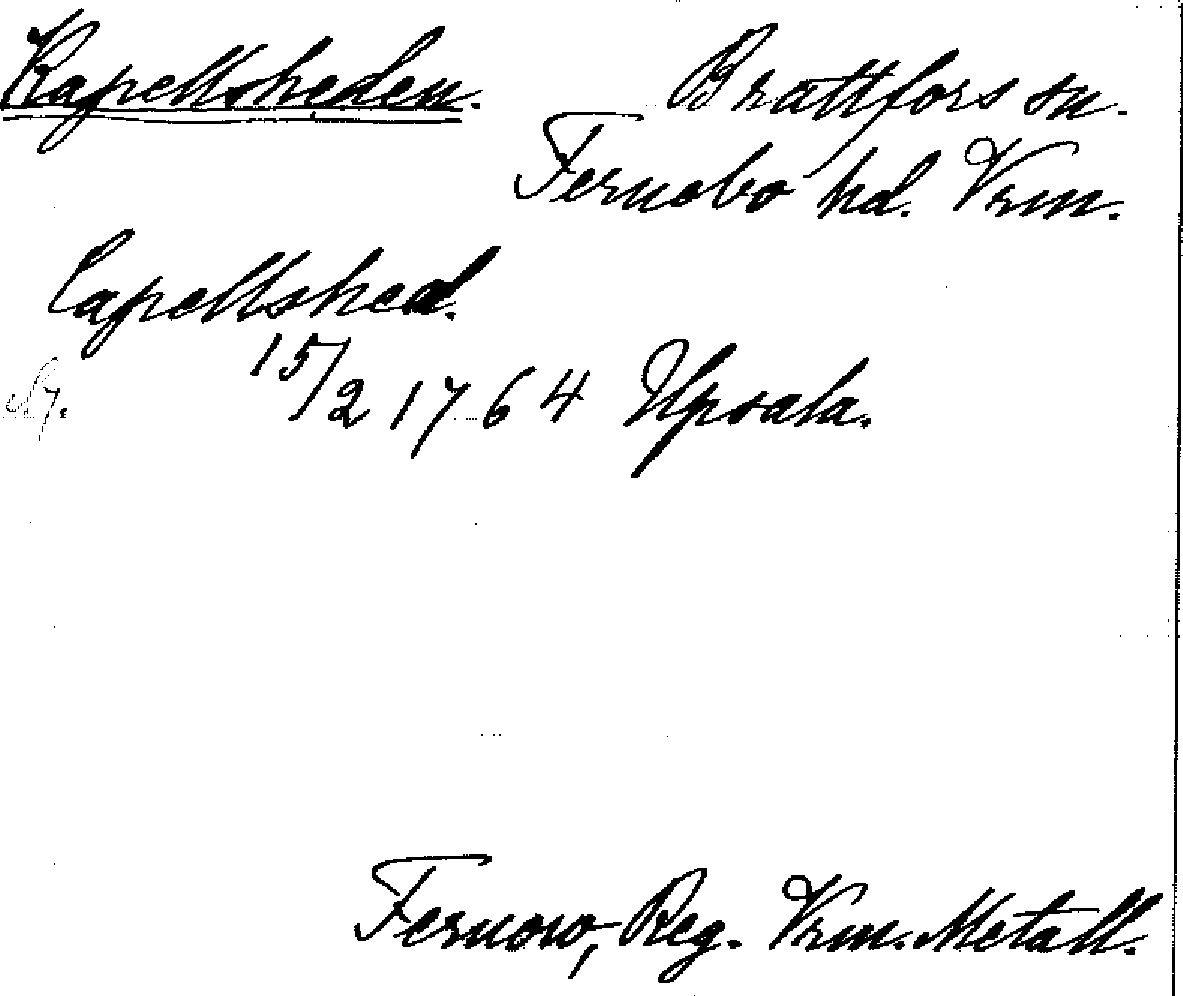 Kapellsheden. Brattfors sn.
Fernebo hd. Vrm.
Capellshed.
15/2 1764 Upsala.
Fernow, Reg. Vrm. Metall.